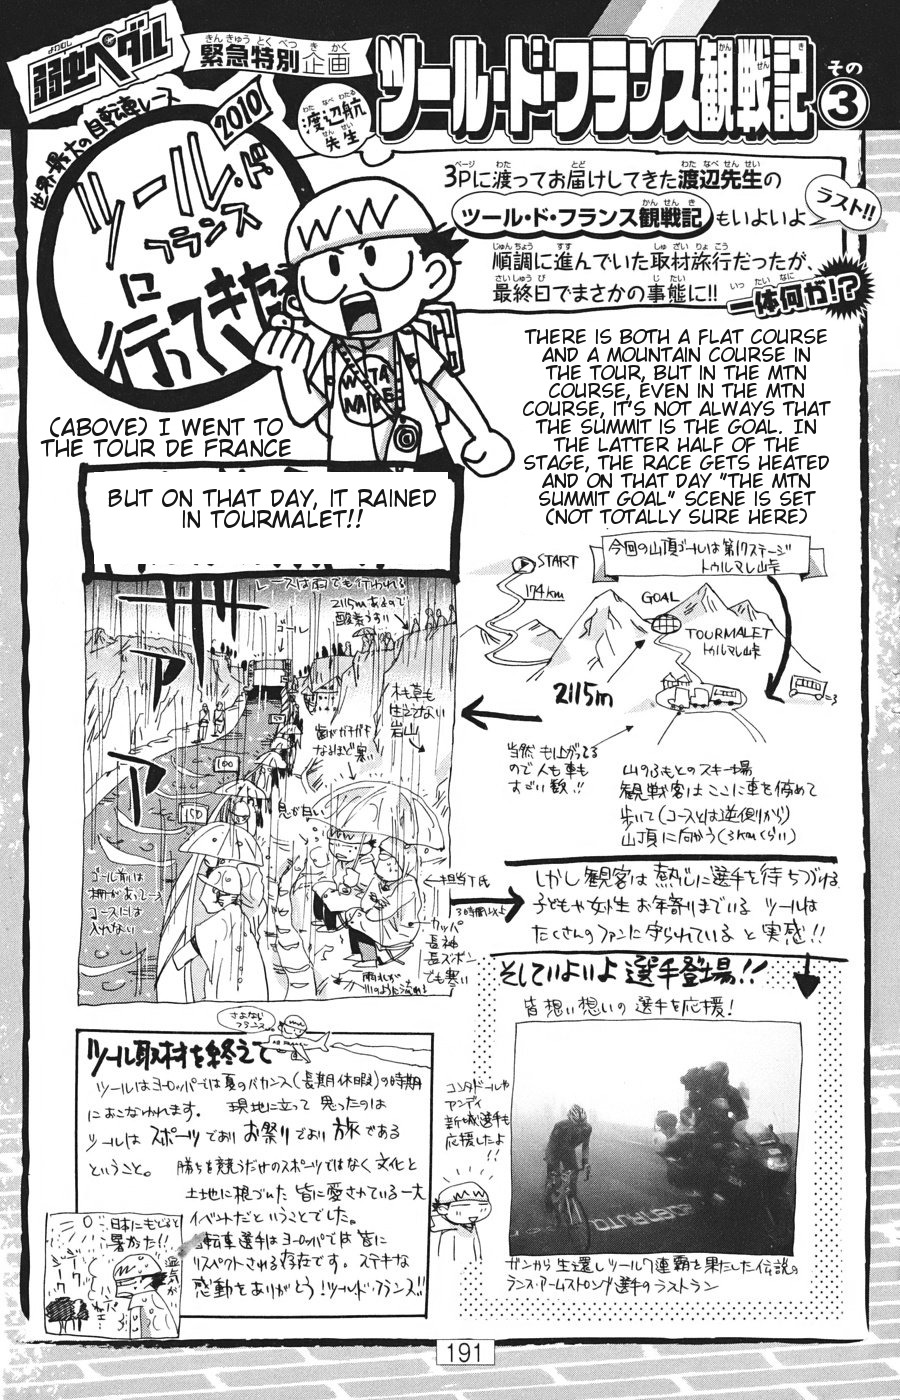 弱虫ペダル
よわむし
緊急特別企画
きんきゅうとくべつきかく
ツール・ド・フランス観戦記
かんせんき
その3
渡辺航先生
わたなべわたるせんせい
世界最大の自転車レース
2010
ツール・ド
フランス
に
行ってきた
3Pに渡ってお届けしてきた渡辺先生の
ツール・ド・フランス観戦記もいよいよ
ラスト!!
順調に進んでいた取材旅行だったが、
最終日でまさかの事態に!!
一体何が!?
(ABOVE) I WENT TO
THE TOUR DE FRANCE
THERE IS BOTH A FLAT COURSE
AND A MOUNTAIN COURSE IN
THE TOUR, BUT IN THE MTN
COURSE, EVEN IN THE MTN
COURSE, IT'S NOT ALWAYS THAT
THE SUMMIT IS THE GOAL. IN
THE LATTER HALF OF THE
STAGE, THE RACE GETS HEATED
AND ON THAT DAY "THE MTN
SUMMIT GOAL" SCENE IS SET
(NOT TOTALLY SURE HERE)
BUT ON THAT DAY, IT RAINED
IN TOURMALET!!
今回の山頂ゴールは第17ステージ
トゥルマレ峠
START
174km
GOAL
TOURMALET
トゥルマレ峠
2115m
当然 も上がってる
ので人も車も
すごい数!!
山のふもとのスキー場
観戦客はここに車を停めて
歩いて(コースとは逆側から)
山頂に向かう(3kmくらい)
レースは雨でも行われる
2115mあるので
酸素うすい
ゴール
ザアアアア
木も草も
生えてない
岩山
歯がガチガチ
なるほど寒い
100
150
息が白い
ゴール前は
柵があって
コースには
入れない
担当T氏
3時間以上
カッパ
長袖
長ズボン
でも寒い
雨水が
川のように流れる
しかし観客は熱心に選手を待ちつづける
子どもや女性 お年寄りまでいる ツールは
たくさんのファンに守られていると実感!!
そしていよいよ選手登場!!
皆想い想いの選手を応援!
コンタドールや
アンディ
新城選手も
応援したよ
ガンから生還しツール7連覇を果たした伝説の
ランス・アームストロング選手のラストラン
さよなら
フランス
ツール取材を終えて
ツールはヨーロッパでは夏のバカンス(長期休暇)の時期
におこなわれます。 現地に立って思ったのは
ツールはスポーツであり お祭りであり 旅である
ということ。 勝ちを競うだけのスポーツではなく文化と
土地に根づいた 皆に愛されている一大
イベントだということでした。
自転車選手はヨーロッパでは皆に
リスペクトされる存在です。ステキな
感動をありがとう!ツール・ド・フランス!!
日本にもどると
暑かった!!
湿気が
191